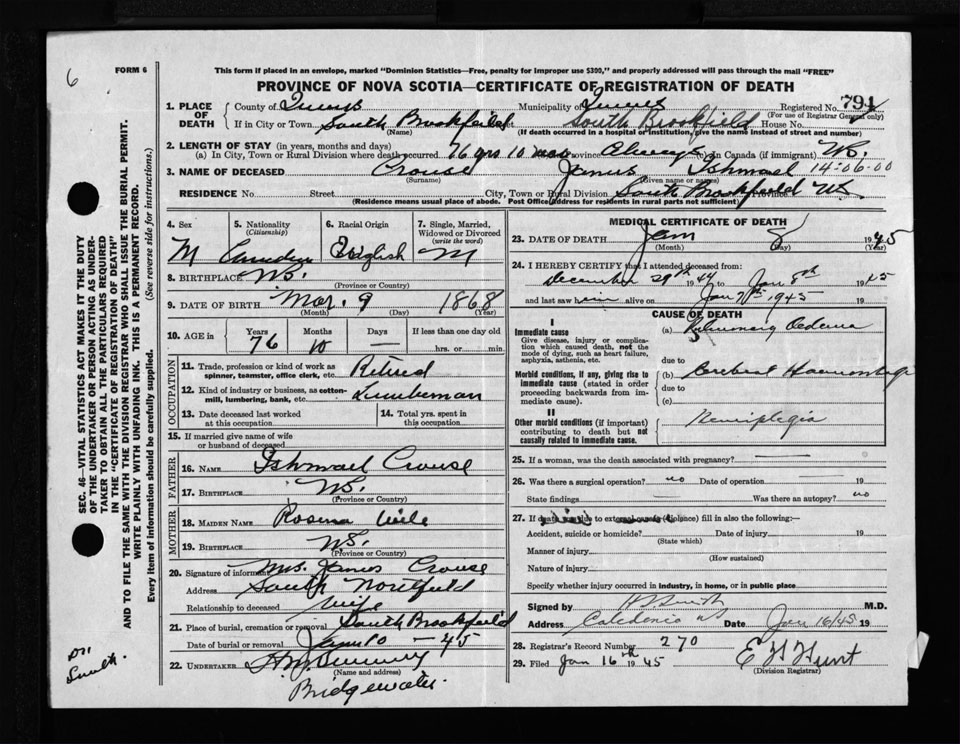 6
FORM 6
This form if placed in an envelope, marked "Dominion Statistics—Free, penalty for improper use $300," and properly addressed will pass through the mail "FREE"
PROVINCE OF NOVA SCOTIA—CERTIFICATE OF REGISTRATION OF DEATH
1. PLACE OF DEATH County of Queens Municipality of Queens Registered No. 794
(For use of Registrar General only)
If in City or Town South Brookfield South Brookfield House No.
(Name) (If death occurred in a hospital or institution, give the name instead of street and number)
2. LENGTH OF STAY (in years, months and days)
(a) In City, Town or Rural Division where death occurred 76 yrs 10 mos Province Always in Canada (if immigrant)
3. NAME OF DECEASED Crouse James Ishmael 14-06-00
(Surname) (Given name or names)
RESIDENCE No. Street City, Town or Rural Division South Brookfield Province N.S.
(Residence means usual place of abode. Post Office Address for residents in rural parts not sufficient)
4. Sex M
5. Nationality (Citizenship) Canadian
6. Racial Origin English
7. Single, Married, Widowed or Divorced (write the word) M
8. BIRTHPLACE N.S.
(Province or Country)
9. DATE OF BIRTH Mar. 9 1868
(Month) (Day) (Year)
10. AGE in Years 76 Months 10 Days — If less than one day old hrs. or min.
OCCUPATION
11. Trade, profession or kind of work as spinner, teamster, office clerk, etc. Retired
12. Kind of industry or business, as cotton-mill, lumbering, bank, etc. Lumberman
13. Date deceased last worked at this occupation
14. Total yrs. spent in this occupation
15. If married give name of wife or husband of deceased
FATHER
16. NAME Ishmael Crouse
17. BIRTHPLACE N.S.
(Province or Country)
MOTHER
18. MAIDEN NAME Rosena Wile
19. BIRTHPLACE N.S.
(Province or Country)
20. Signature of informant Mrs. James Crouse
Address South
Relationship to deceased Wife
21. Place of burial, cremation or removal South Brookfield
Date of burial or removal Jan 10 - 45
22. UNDERTAKER
(Name and address)
Bridgewater.
MEDICAL CERTIFICATE OF DEATH
23. DATE OF DEATH Jan 8 1945
(Month) (Day)
24. I HEREBY CERTIFY that I attended deceased from:
December 29th 1944 to Jan 8th 1945
and last saw him alive on Jan 7th 1945
CAUSE OF DEATH
I
Immediate cause
Give disease, injury or complication which caused death, not the mode of dying, such as heart failure, asphyxia, asthenia, etc.
(a) Pulmonary Oedema
due to
Morbid conditions, if any, giving rise to immediate cause (stated in order proceeding backwards from immediate cause).
(b) Cerebral Haemorrhage
due to
(c)
II
Other morbid conditions (if important) contributing to death but not causally related to immediate cause.
Hemiplegia
25. If a woman, was the death associated with pregnancy? —
26. Was there a surgical operation? no Date of operation — 19
State findings Was there an autopsy? no
27. If death was due to external causes (violence) fill in also the following:—
Accident, suicide or homicide? Date of injury 19
(State which)
Manner of injury
(How sustained)
Nature of injury
Specify whether injury occurred in industry, in home, or in public place
Signed by Smith M.D.
Address Caledonia NS Date Jan 16/45 19
28. Registrar's Record Number 270
29. Filed Jan 16th 1945 E H Hunt
(Division Registrar)
SEC. 46—VITAL STATISTICS ACT MAKES IT THE DUTY OF THE UNDERTAKER OR PERSON ACTING AS UNDERTAKER TO OBTAIN ALL THE PARTICULARS REQUIRED IN THE "CERTIFICATE OF REGISTRATION OF DEATH" AND TO FILE THE SAME WITH THE DIVISION REGISTRAR WHO SHALL ISSUE THE BURIAL PERMIT.
WRITE PLAINLY WITH UNFADING INK. THIS IS A PERMANENT RECORD.
Every item of information should be carefully supplied. (See reverse side for instructions.)
Smith.